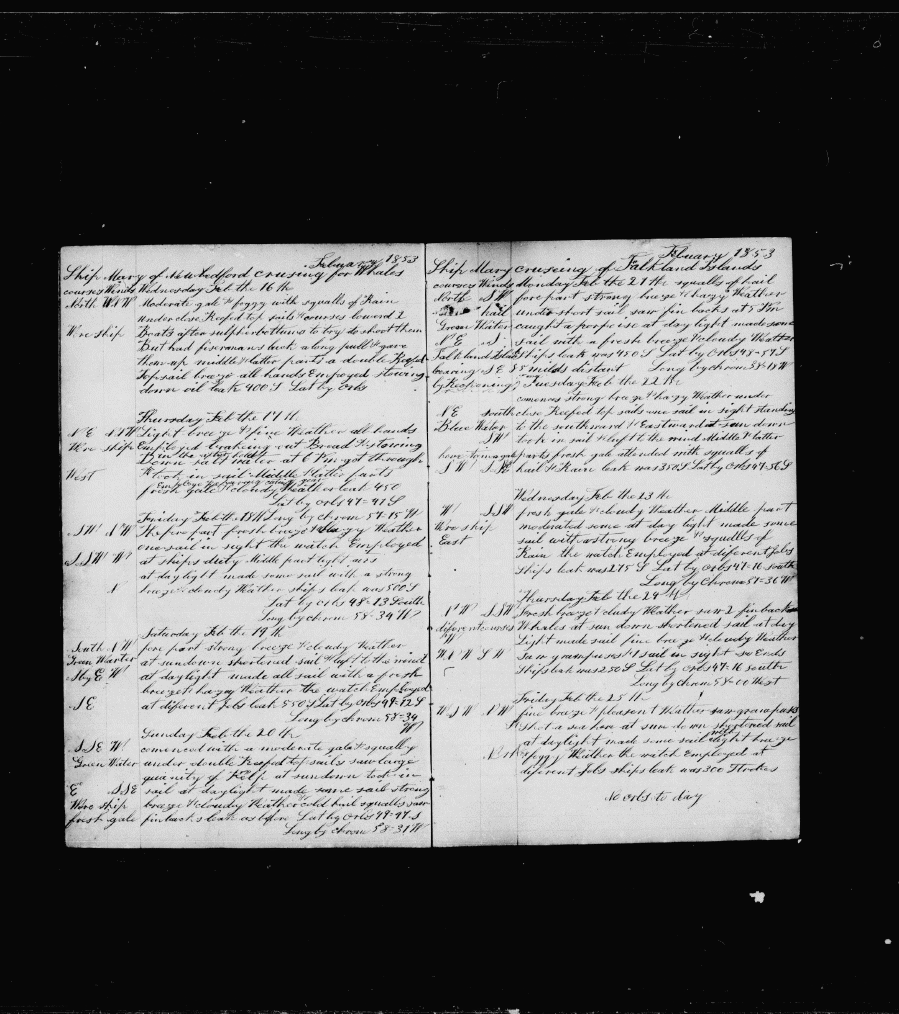 Febuary 1853
Ship Mary of New bedford crusing for Whales
courses Winds Wednesday Feb the 16 th
North WNW Moderate gale & foggy with squalls of Rain
under close Reefed top sails & courses lowerd 2
Wore ship Boats after sulpherbottoms to try to shoot them
But had fisermans luck a long pull & gave
them up middle & latter parts a double Reefed
Topsail breeze all hands Employed stowing
down oil leak 400 S Lat by Orbs
Thursday Feb the 17 th
NE NNW Light breeze & fine Weather all hands
Wore ship Employed braking out Bread & stowing
in the after hold
Down salt water at 6 Pm got through
West & took in sail Middle & latter parts
fresh gale & cloudy Weather leak 450
Lat by Orbs 47=41 S
Friday Feb the 18th Long by chrom 59=15 W
SW NW The fore part fresh breeze & hazy Weather
one sail in sight the watch Employed
SSW W at ships duty Middle part light airs
at daylight made some sail with a strong
N breeze & cloudy Weather ships leak was 500 S
Lat by Orbs 48=13 South
Long by chrom 58=34 W
Saturday Feb the 19 th
South NW fore part strong breeze & cloudy Weather
Green Warter at sundown shortened sail & luft to the wind
SbyE W at daylight made all sail with a fresh
breeze & hazy Weather the watch Employed
SE at diferent Jobs leak 550 S Lat by Orbs 49=12 S
Long by chrom 58=34
W
Sunday Feb the 20 th
SSE W comenced with a moderate gale & squally
Green Water under double Reefed top sails saw large
quanity of Kelp at sundown took in
E SSE sail at daylight made some sail strong
Wore ship breeze & cloudy Weather cold hail squalls saw
fresh gale finbacks leak as before Lat by Orbs 49=47 S
Long by chrom 58=31 W
Febuary 1853
Ship Mary cruseing of Falkland Islands
courses Winds Monday Feb the 21 th squalls of hail
North SW fore part strong breeze & hazy Weather
hail under short sail saw fin backs at 5 Pm
Green Water caught a porpoise at day light made some
NE S sail with a fresh breeze & cloudy Weather
Falkland Islds Ships leak was 450 S Lat by Orbs 49=57 S
bearing SE 85 milds distant Long by chrom 58=18 W
by Reckoning Tuesday Feb the 22 th
comences strong breeze & hazy Weather under
NE South close Reefed top sails one sail in sight standing
Blew Water to the southward & Eastward at sun down
SW took in sail & luft to the wind Middle & latter
hove to in a gale parts fresh gale attended with squalls of
SW hail & Rain leak was 350 S Lat by Orbs 47=36 S
Wednesday Feb the 23 th
W SSW fresh gale & cloudy Weather Middle part
Wore ship moderated some at day light made some
East sail with a strong breeze & squalls of
Rain the watch Employed at different Jobs
Ships leak was 275 S Lat by Orbs 47=16 South
Long by Chrom 57=30 W
Thursday Feb the 24 th
SSW Fresh breeze & cludy Weather saw 2 finback
diferent courses Whales at sun down shortened sail at day
W Light made sail fine breeze & cloudy Weather
WNW SW Saw grampuses & 1 sail in sight so Ends
Ships leak was 250 S Lat by Orbs 47=16 South
Long by Chrom 58=00 West
Friday Feb the 25 th
WSW NW fine breeze & pleasent Weather saw grampass
& shot a sea lion at sun down shortened sail
at daylight made some sail with light breeze
& foggy Weather the watch Employed at
diferent Jobs ships leak was 300 Strokes
No orbs to day